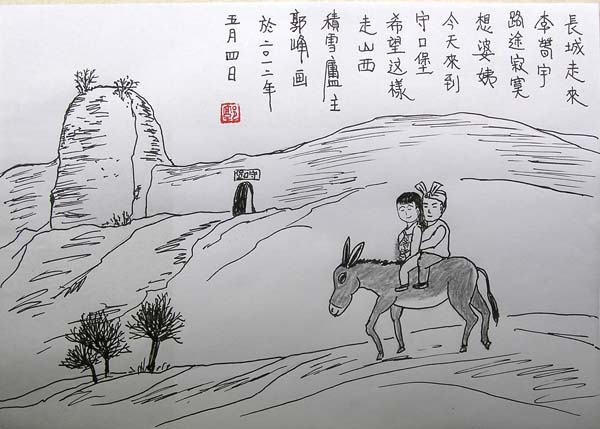 長城走來
李 宇
路途寂寞
想婆姨
今天來到
守口堡
希望这樣
走山西
積雪廬主
郭峰画
於二〇一二年
五月四日
守口堡